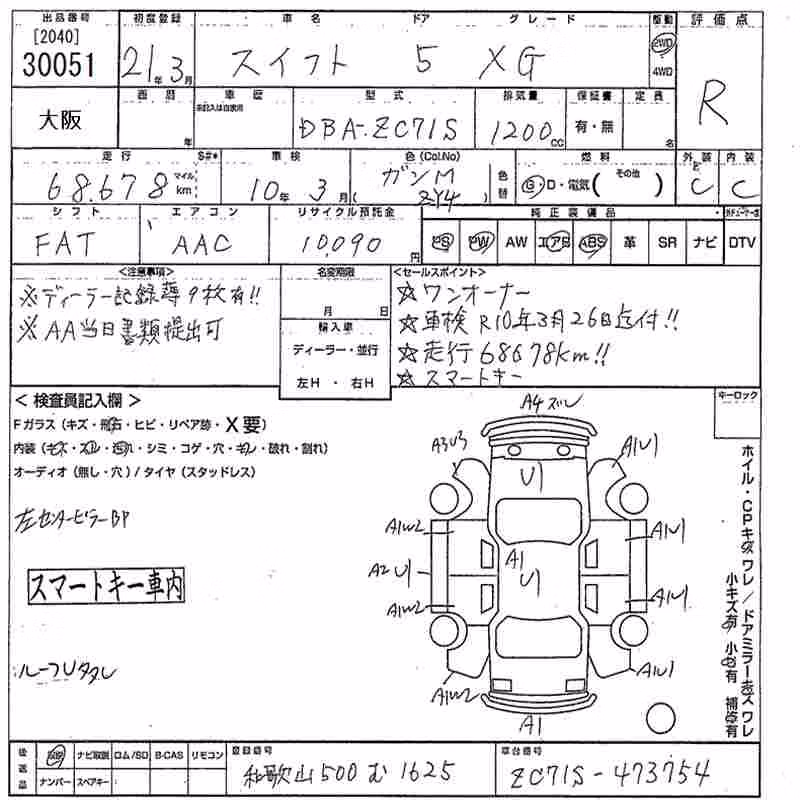 出品番号 初度登録 車名 ドア グレード 駆動 評価点
[2040]
30051 21年 3月 スイフト 5 XG 2WD 4WD R
大阪 西暦 年 車歴 未記入は自家用 型式 排気量 保証書 定員
DBA-ZC71S 1200cc 有・無
走行 S#* 車検 色(Col.No) 燃料 外装 内装
68.678 マイル km 10年 3月 ガンM ( ZY4 ) 色替 G・D・電気( その他 ) C C
シフト エアコン リサイクル預託金 純正装備品
FAT AAC 10,090円 PS PW AW エアB ABS 革 SR ナビ DTV
<注意事項> 名変期限 <セールスポイント>
※ディーラー記録簿9枚有!!
※AA当日書類提出可
月 日
輸入車
ディーラー・並行
左H ・ 右H
☆ワンオーナー
☆車検R10年3月26日迄付!!
☆走行68678km!!
☆スマートキー
キーロック
< 検査員記入欄 >
Fガラス (キズ・飛石・ヒビ・リペア跡・X要)
内装 (キズ・スレ・汚れ・シミ・コゲ・穴・キレ・破れ・割れ)
オーディオ (無し・穴) / タイヤ (スタッドレス)
左センターピラーBP
スマートキー車内
ルーフUタタレ
A4 ズレ
A3U3 U1 A1U1
A1W2 A1 A1U1
A2U1 U1
A1W2 A1U1
A1W2 A1U1
A1
ホイル・CPキズ ワレ / ドアミラーキズ ワレ
小キズ有 小凹有 補修有
後送品 取説 ナビ取説 ロム/SD B-CAS リモコン 登録番号 車台番号
ナンバー スペアキー 和歌山500む1625 ZC71S-473754